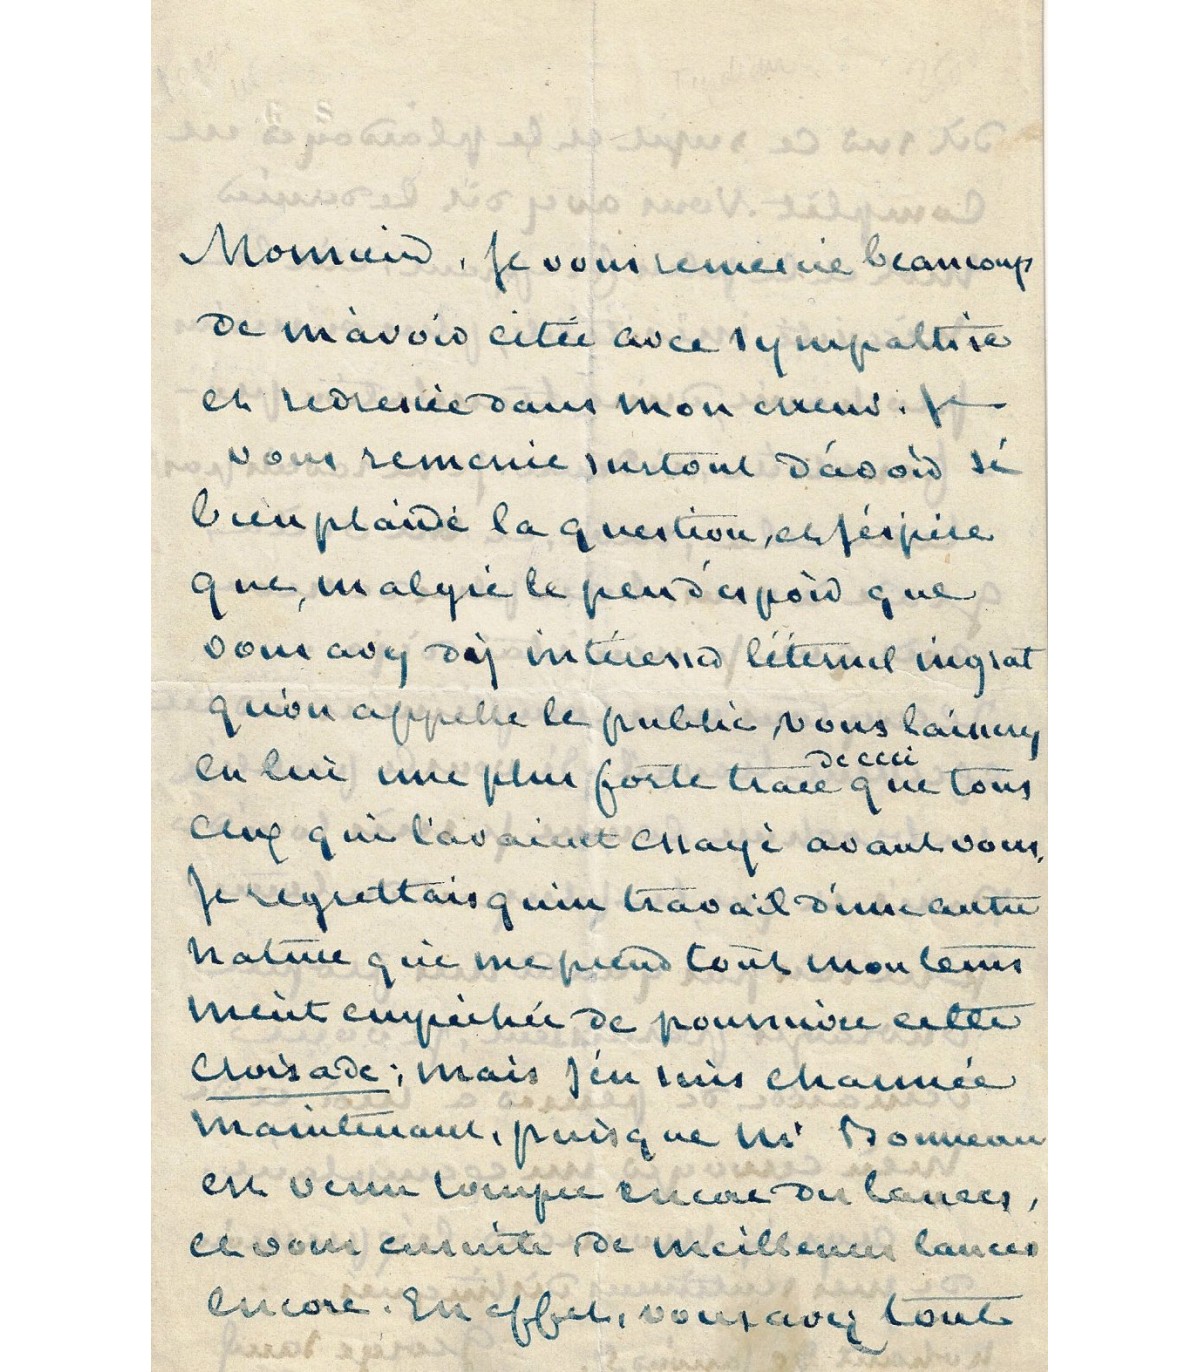 Monsieur, je vous remercie beaucoup
de m'avoir citée avec sympathie
et redressée dans mon erreur. Je
vous remercie surtout d'avoir si
bien plaidé la question, et j'espère
que, malgré le peu d'espoir que
vous avez d'y intéresser l'éternel ingrat
qu'on appelle le public, vous laisserez
en lui une plus forte trace de ceci que tous
ceux qui l'avaient essayé avant vous.
Je regrettais qu'un travail d'une autre
nature qui me prend tout mon tems
m'eût empêchée de poursuivre cette
croisade; mais j'en suis charmée
maintenant, puisque Mr Bonneau
est venu rompre encore des lances,
et vous ensuite de meilleures lances
encore. En effet, vous avez tout